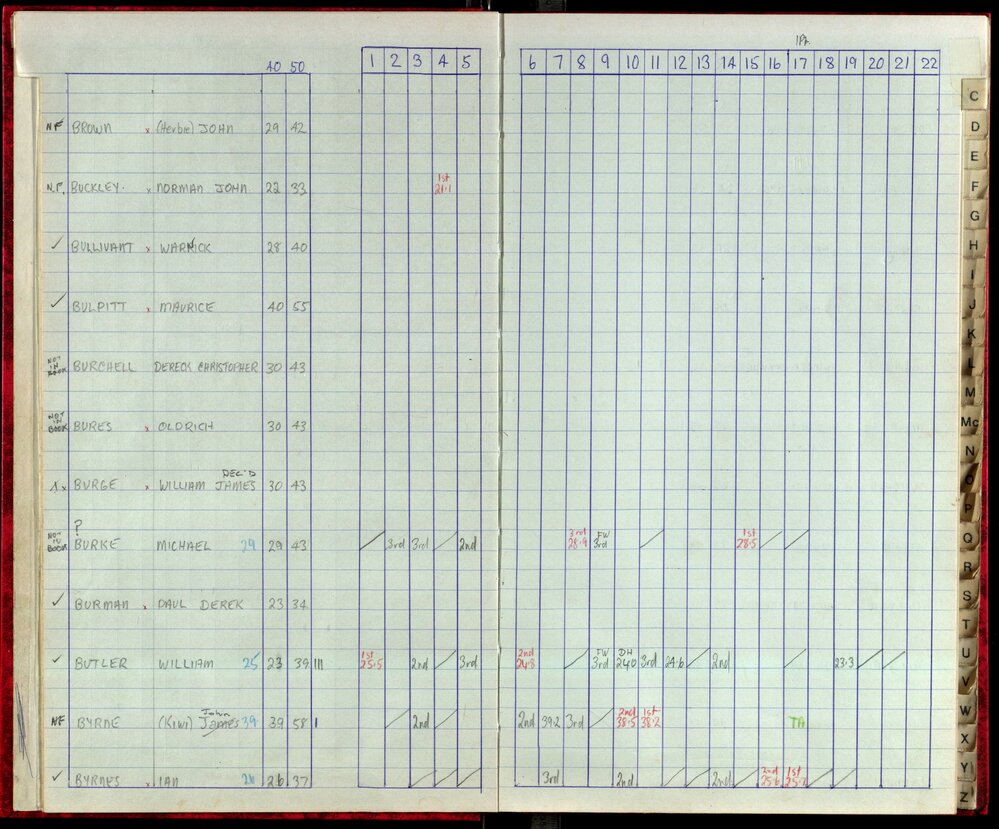 1PA
40 50 1 2 3 4 5 6 7 8 9 10 11 12 13 14 15 16 17 18 19 20 21 22
NF BROWN x (Herbie) JOHN 29 42
1st
N.F. BUCKLEY. x NORMAN JOHN. 22 33 21.1
✓ BULLIVANT x WARWICK 28 40
✓ BULPITT x MAURICE 40 55
NOT IN BOOK BURCHELL DERECK CHRISTOPHER 30 43
NOT IN BOOK BURES x OLDRICH 30 43
DEC'D
x BURGE x WILLIAM JAMES 30 43
?
NOT IN BOOK BURKE MICHAEL 29 29 43 / 3rd 3rd / 2nd 3rd 28.9 FW 3rd / 1st 28.5 / /
✓ BURMAN x PAUL DEREK 23 34
✓ BUTLER WILLIAM 25 23 39 III 1st 25.5 2nd / 3rd 2nd 24.8 / FW 3rd DH 240 3rd 24.6 / 2nd / 23.3 / /
John
NF BYRNE (Kiwi) James 39 39 58 I / 2nd / 2nd 39.2 3rd / 2nd 38.5 1st 38.2 TA
✓ BYRNES x IAN 26 37 / / / 3rd 2nd / / 2nd / 2nd 25.6 1st 25.7 / /
C
D
E
F
G
H
I
J
K
L
M
Mc
N
O
P
Q
R
S
T
U
V
W
X
Y
Z